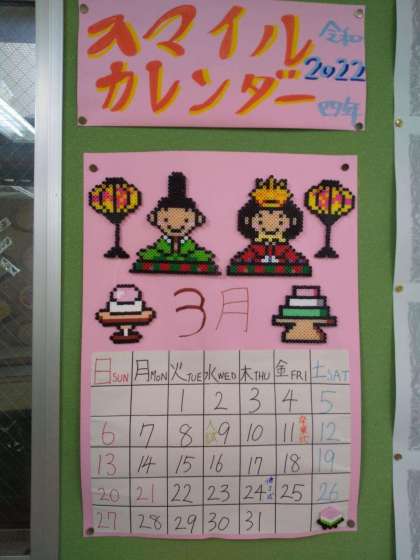 スマイル
カレンダー
令和
2022
四年
3月
日SUN 月MON 火TUE 水WED 木THU 金FRI 土SAT
1 2 3 4 5
6 7 8 9 10 11 卒業式 12
13 14 15 16 17 18 19
20 21 22 23 24 修了式 25 26
27 28 29 30 31